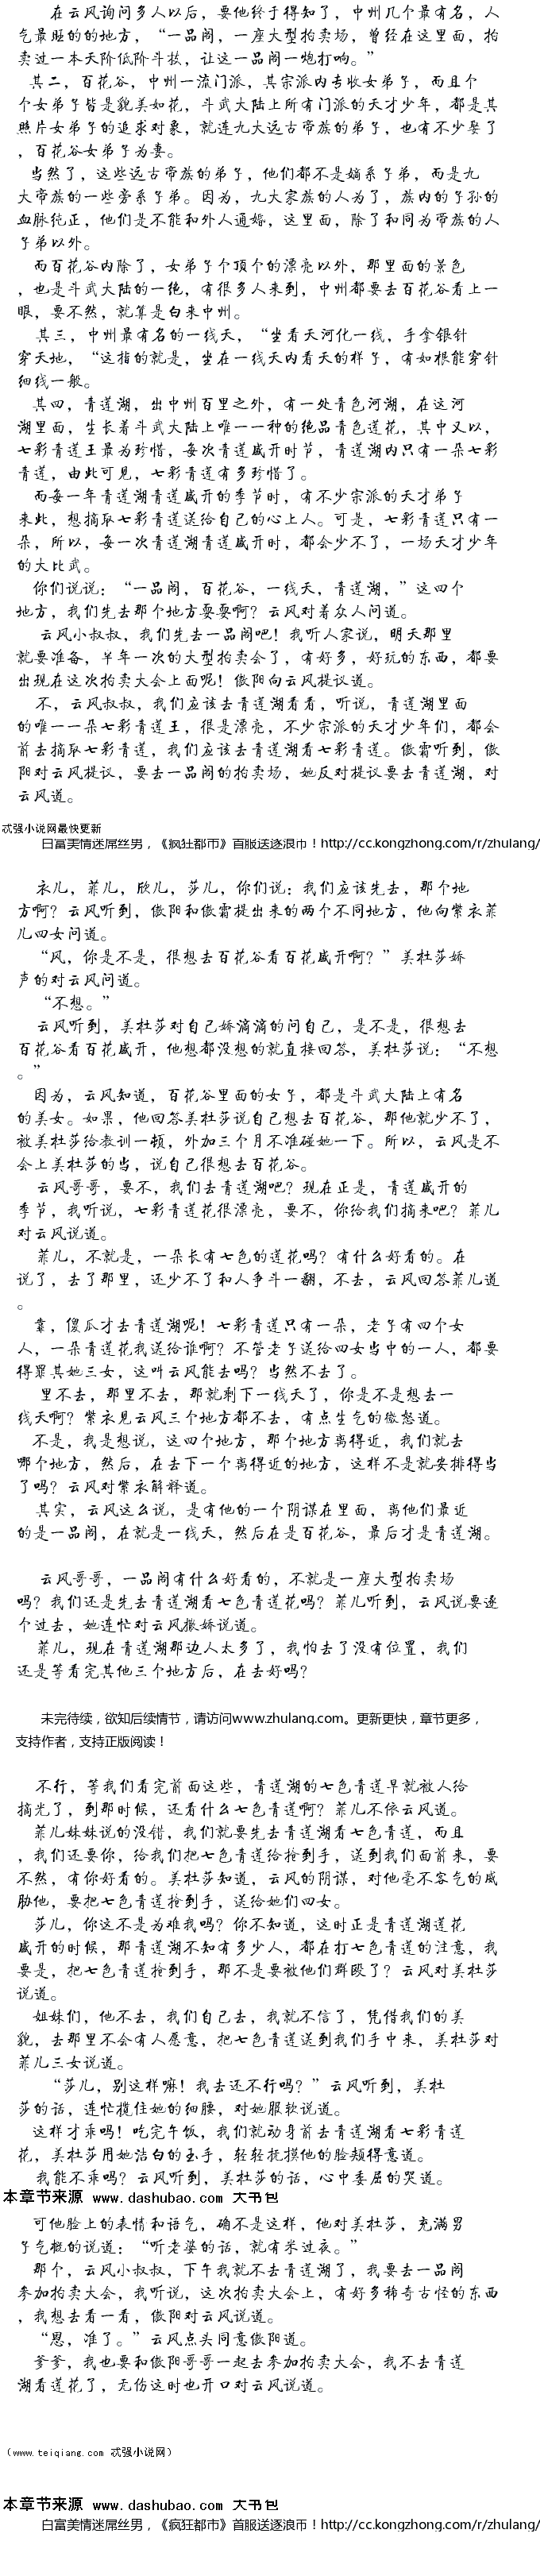 在云风询问多人以后，要他终于得知了，中州几个最有名，人
气最旺的的地方，“一品阁，一座大型拍卖场，曾经在这里面，拍
卖过一本天阶低阶斗技，让这一品阁一炮打响。”
其二，百花谷，中州一流门派，其宗派内专收女弟子，而且个
个女弟子皆是貌美如花，斗武大陆上所有门派的天才少年，都是其
照片女弟子的追求对象，就连九大远古帝族的弟子，也有不少娶了
，百花谷女弟子为妻。
当然了，这些远古帝族的弟子，他们都不是嫡系子弟，而是九
大帝族的一些旁系子弟。因为，九大家族的人为了，族内的子孙的
血脉纯正，他们是不能和外人通婚，这里面，除了和同为帝族的人
子弟以外。
而百花谷内除了，女弟子个顶个的漂亮以外，那里面的景色
，也是斗武大陆的一绝，有很多人来到，中州都要去百花谷看上一
眼，要不然，就算是白来中州。
其三，中州最有名的一线天，“坐看天河化一线，手拿银针
穿天地，“这指的就是，坐在一线天内看天的样子，有如根能穿针
细线一般。
其四，青莲湖，出中州百里之外，有一处青色河湖，在这河
湖里面，生长着斗武大陆上唯一一种的绝品青色莲花，其中又以，
七彩青莲王最为珍惜，每次青莲盛开时节，青莲湖内只有一朵七彩
青莲，由此可见，七彩青莲有多珍惜了。
而每一年青莲湖青莲盛开的季节时，有不少宗派的天才弟子
来此，想摘取七彩青莲送给自己的心上人。可是，七彩青莲只有一
朵，所以，每一次青莲湖青莲盛开时，都会少不了，一场天才少年
的大比武。
你们说说：“一品阁，百花谷，一线天，青莲湖，”这四个
地方，我们先去那个地方耍耍啊？云风对着众人问道。
云风小叔叔，我们先去一品阁吧！我听人家说，明天那里
就要准备，半年一次的大型拍卖会了，有好多，好玩的东西，都要
出现在这次拍卖大会上面呢！傲阳向云风提议道。
不，云风叔叔，我们应该去青莲湖看看，听说，青莲湖里面
的唯一一朵七彩青莲王，很是漂亮，不少宗派的天才少年们，都会
前去摘取七彩青莲，我们应该去青莲湖看七彩青莲。傲霜听到，傲
阳对云风提议，要去一品阁的拍卖场，她反对提议要去青莲湖，对
云风道。
忒强小说网最快更新
白富美情迷屌丝男，《疯狂都市》首服送逐浪币！http://cc.kongzhong.com/r/zhulang/
衣儿，菲儿，欣儿，莎儿，你们说：我们应该先去，那个地
方啊？云风听到，傲阳和傲霜提出来的两个不同地方，他向紫衣菲
儿四女问道。
“风，你是不是，很想去百花谷看百花盛开啊？”美杜莎娇
声的对云风问道。
“不想。”
云风听到，美杜莎对自己娇滴滴的问自己，是不是，很想去
百花谷看百花盛开，他想都没想的就直接回答，美杜莎说：“不想
。”
因为，云风知道，百花谷里面的女子，都是斗武大陆上有名
的美女。如果，他回答美杜莎说自己想去百花谷，那他就少不了，
被美杜莎给教训一顿，外加三个月不准碰她一下。所以，云风是不
会上美杜莎的当，说自己很想去百花谷。
云风哥哥，要不，我们去青莲湖吧？现在正是，青莲盛开的
季节，我听说，七彩青莲花很漂亮，要不，你给我们摘来吧？菲儿
对云风说道。
菲儿，不就是，一朵长有七色的莲花吗？有什么好看的。在
说了，去了那里，还少不了和人争斗一翻，不去，云风回答菲儿道
。
靠，傻瓜才去青莲湖呢！七彩青莲只有一朵，老子有四个女
人，一朵青莲花我送给谁啊？不管老子送给四女当中的一人，都要
得罪其她三女，这叫云风能去吗？当然不去了。
里不去，那里不去，那就剩下一线天了，你是不是想去一
线天啊？紫衣见云风三个地方都不去，有点生气的微怒道。
不是，我是想说，这四个地方，那个地方离得近，我们就去
哪个地方，然后，在去下一个离得近的地方，这样不是就安排得当
了吗？云风对紫衣解释道。
其实，云风这么说，是有他的一个阴谋在里面，离他们最近
的是一品阁，在就是一线天，然后在是百花谷，最后才是青莲湖。
云风哥哥，一品阁有什么好看的，不就是一座大型拍卖场
吗？我们还是先去青莲湖看七色青莲花吗？菲儿听到，云风说要逐
个过去，她连忙对云风撒娇说道。
菲儿，现在青莲湖那边人太多了，我怕去了没有位置，我们
还是等看完其他三个地方后，在去好吗？
未完待续，欲知后续情节，请访问www.zhulang.com。更新更快，章节更多，
支持作者，支持正版阅读！
不行，等我们看完前面这些，青莲湖的七色青莲早就被人给
摘光了，到那时候，还看什么七色青莲啊？菲儿不依云风道。
菲儿妹妹说的没错，我们就要先去青莲湖看七色青莲，而且
，我们还要你，给我们把七色青莲给抢到手，送到我们面前来，要
不然，有你好看的。美杜莎知道，云风的阴谋，对他毫不客气的威
胁他，要把七色青莲抢到手，送给她们四女。
莎儿，你这不是为难我吗？你不知道，这时正是青莲湖莲花
盛开的时候，那青莲湖不知有多少人，都在打七色青莲的注意，我
要是，把七色青莲抢到手，那不是要被他们群殴了？云风对美杜莎
说道。
姐妹们，他不去，我们自己去，我就不信了，凭借我们的美
貌，去那里不会有人愿意，把七色青莲送到我们手中来，美杜莎对
菲儿三女说道。
“莎儿，别这样嘛！我去还不行吗？”云风听到，美杜
莎的话，连忙揽住她的细腰，对她服软说道。
这样才乖吗！吃完午饭，我们就动身前去青莲湖看七彩青莲
花，美杜莎用她洁白的玉手，轻轻抚摸他的脸颊得意道。
我能不乖吗？云风听到，美杜莎的话，心中委屈的哭道。
本章节来源 www.dashubao.com 大书包
可他脸上的表情和语气，确不是这样，他对美杜莎，充满男
子气概的说道：“听老婆的话，就有米过夜。”
那个，云风小叔叔，下午我就不去青莲湖了，我要去一品阁
参加拍卖大会，我听说，这次拍卖大会上，有好多稀奇古怪的东西
，我想去看一看，傲阳对云风说道。
“恩，准了。”云风点头同意傲阳道。
爹爹，我也要和傲阳哥哥一起去参加拍卖大会，我不去青莲
湖看莲花了，无伤这时也开口对云风说道。
（www.teiqiang.com 忒强小说网）
本章节来源 www.dashubao.com 大书包
白富美情迷屌丝男，《疯狂都市》首服送逐浪币！http://cc.kongzhong.com/r/zhulang/